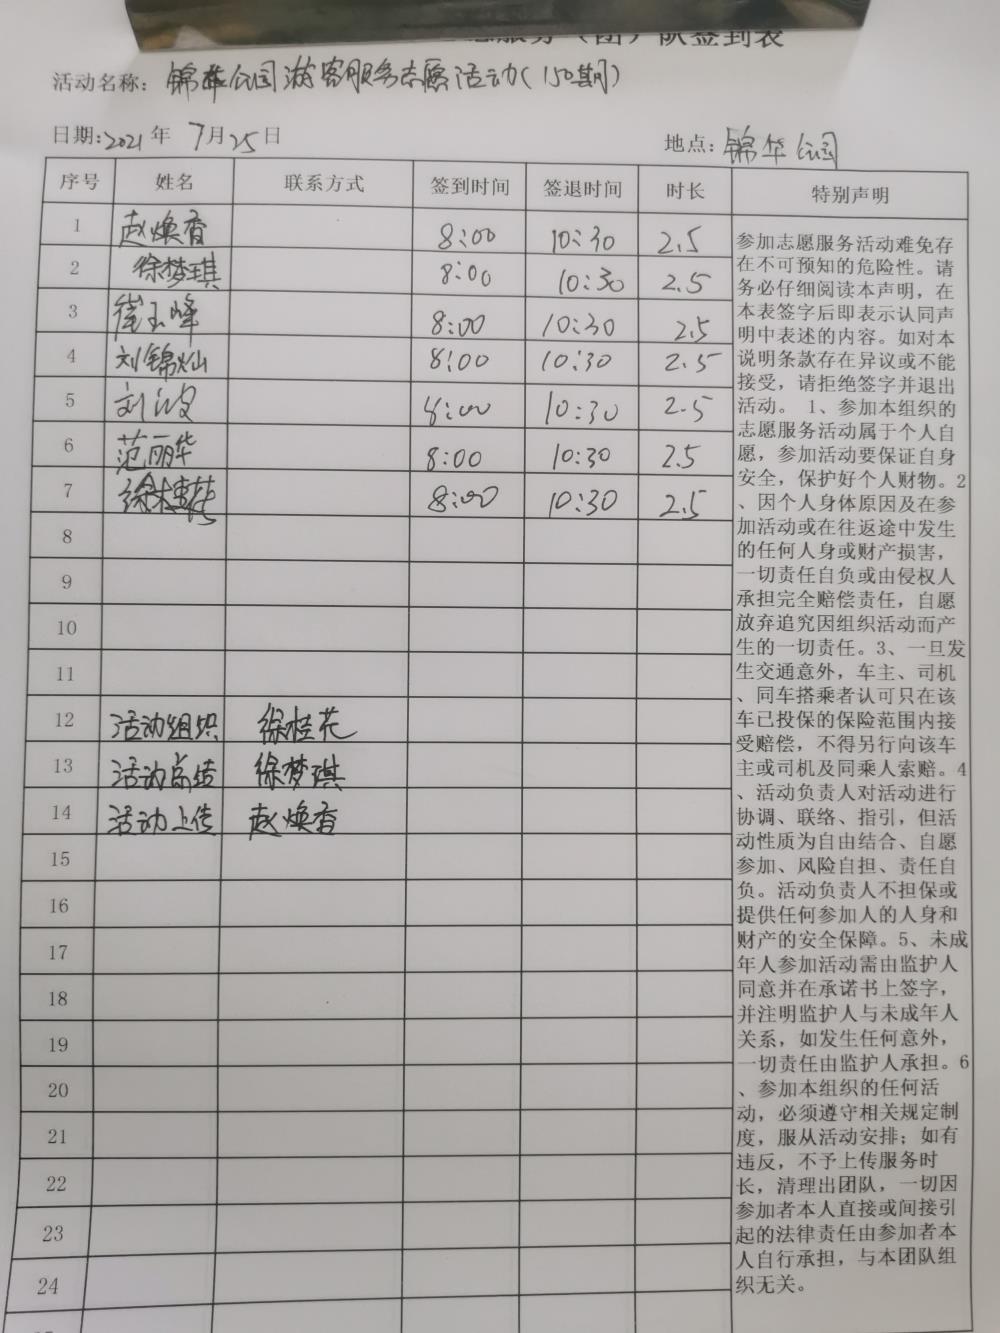 服务（团）队签到表
活动名称：锦华公园游客服务志愿活动（150期）
日期：2021年 7月25日 地点：锦华公园
序号 姓名 联系方式 签到时间 签退时间 时长 特别声明
1 赵焕香 8:00 10:30 2.5
2 徐梦琪 8:00 10:30 2.5
3 崔玉峰 8:00 10:30 2.5
4 刘锦灿 8:00 10:30 2.5
5 刘 8:00 10:30 2.5
6 范丽华 8:00 10:30 2.5
7 徐桂花 8:00 10:30 2.5
8
9
10
11
12 活动组织 徐桂花
13 活动总结 徐梦琪
14 活动上传 赵焕香
15
16
17
18
19
20
21
22
23
24
参加志愿服务活动难免存
在不可预知的危险性。请
务必仔细阅读本声明，在
本表签字后即表示认同声
明中表述的内容。如对本
说明条款存在异议或不能
接受，请拒绝签字并退出
活动。 1、参加本组织的
志愿服务活动属于个人自
愿，参加活动要保证自身
安全，保护好个人财物。2
、因个人身体原因及在参
加活动或在往返途中发生
的任何人身或财产损害，
一切责任自负或由侵权人
承担完全赔偿责任，自愿
放弃追究因组织活动而产
生的一切责任。3、一旦发
生交通意外，车主、司机
、同车搭乘者认可只在该
车已投保的保险范围内接
受赔偿，不得另行向该车
主或司机及同乘人索赔。4
、活动负责人对活动进行
协调、联络、指引，但活
动性质为自由结合、自愿
参加、风险自担、责任自
负。活动负责人不担保或
提供任何参加人的人身和
财产的安全保障。5、未成
年人参加活动需由监护人
同意并在承诺书上签字，
并注明监护人与未成年人
关系，如发生任何意外，
一切责任由监护人承担。6
、参加本组织的任何活
动，必须遵守相关规定制
度，服从活动安排；如有
违反，不予上传服务时
长，清理出团队，一切因
参加者本人直接或间接引
起的法律责任由参加者本
人自行承担，与本团队组
织无关。